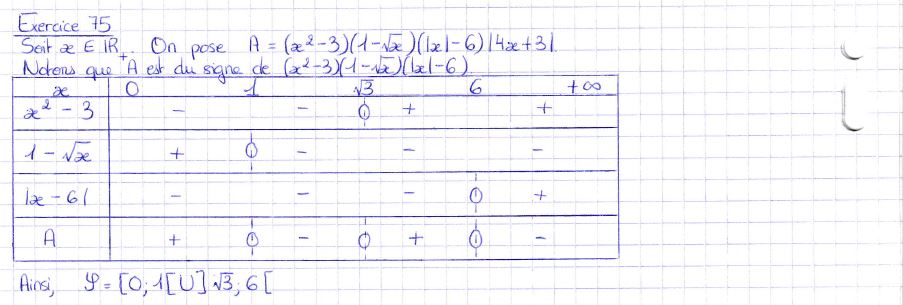 Exercice 75
Soit x ∈ ℝ₊. On pose A = (x² - 3)(1 - √x)(|x| - 6)|4x + 3|
Notons que A est du signe de (x² - 3)(1 - √x)(|x| - 6)
x 0 1 √3 6 +∞
x² - 3 - - 0 + +
1 - √x + 0 - - -
|x - 6| - - - 0 +
A + 0 - 0 + 0 -
Ainsi, 𝒮 = [0; 1[ U ] √3; 6 [